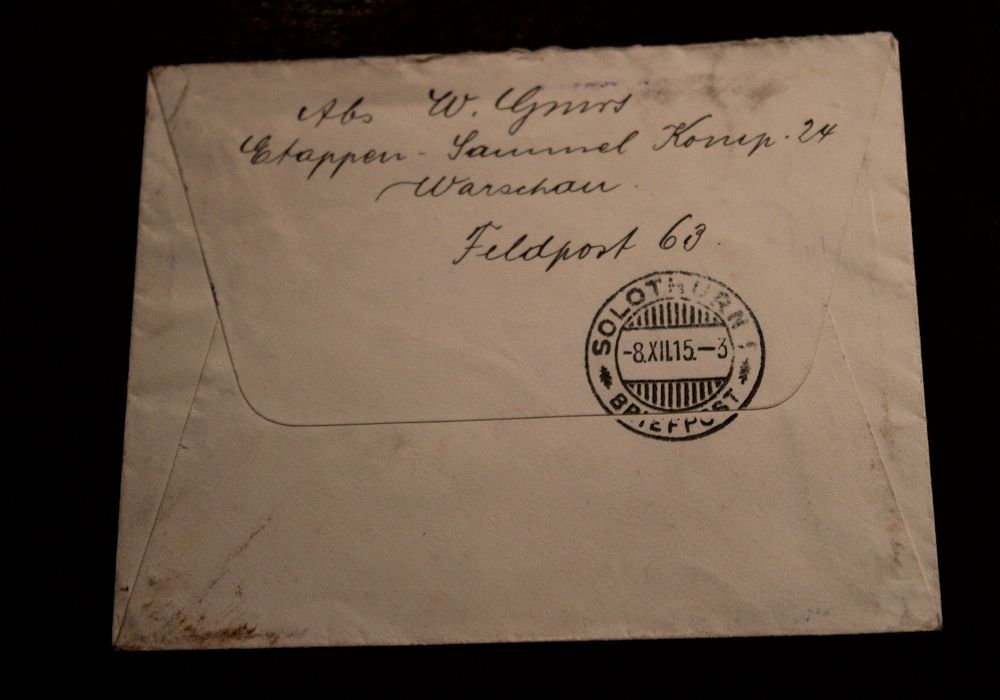 Abs W. Gmürs
Etappen - Sammel Komp. 24
Warschau.
Feldpost 63.
SOLOTHURN 1
-8.XII.15.-3
BRIEFPOST